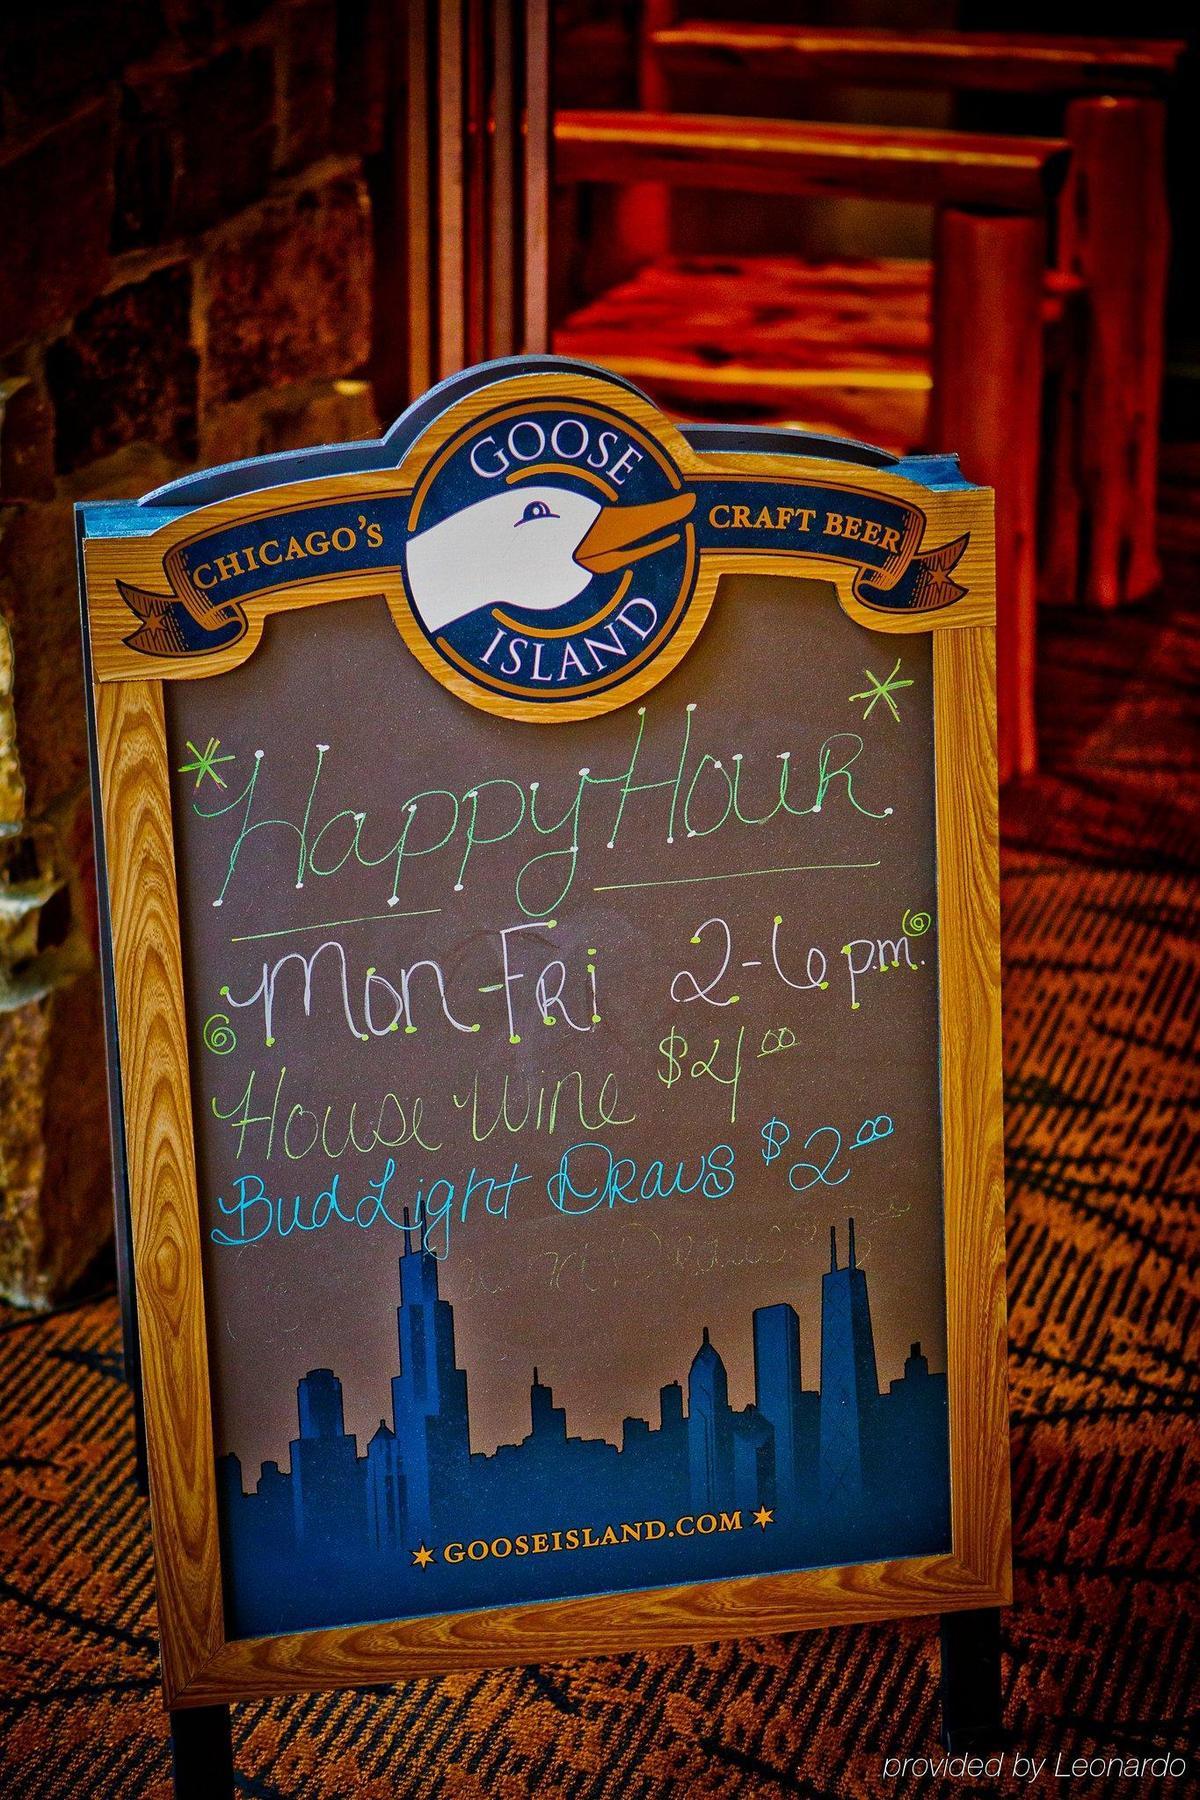 GOOSE
CHICAGO'S
CRAFT BEER
ISLAND
Happy Hour
Mon-Fri 2-6 p.m.
House Wine $4.00
Bud Light Draws $2.00
Draws
GOOSEISLAND.COM
provided by Leonardo